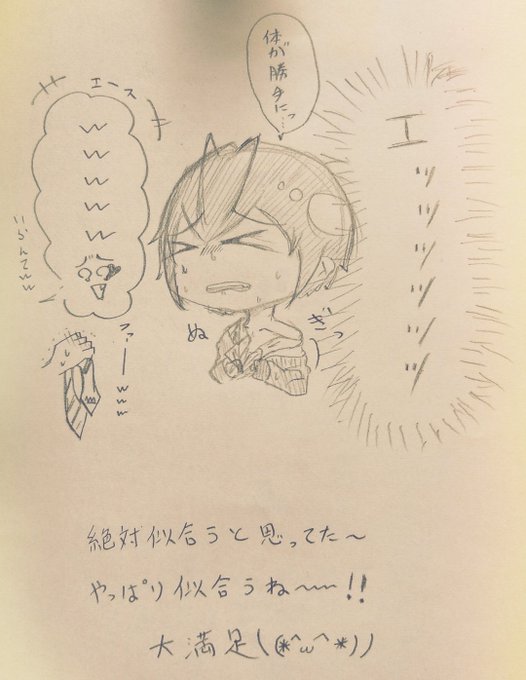 エッッッッッッ
体が勝手にっ…
エース
wwwww
いかんてww
ファーwww
ぬ
ぎっ
絶対似合うと思ってた〜
やっぱり似合うね〜〜!!
大満足\(*^ω^*)/